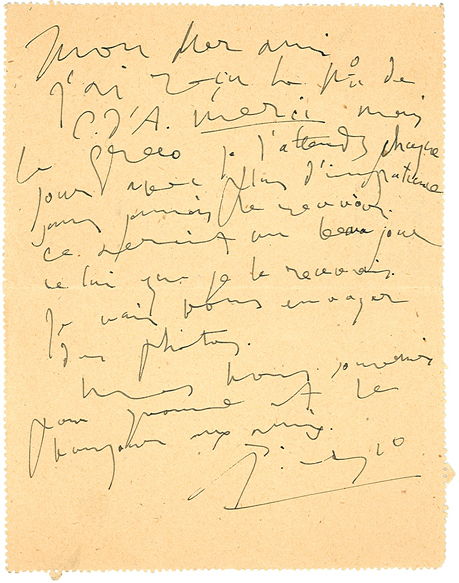 Mon cher ami
j'ai reçu le nº de
C. D'A. merci mais
le greco je l'attends chaque
jour avec plus d'impatience
sans jamais le recevoir.
ce serait un beau jour
celui que je le recevrais.
Je vais vous envoyer
des photos.
mes bons souvenirs
pour Yvonne et le
bonjour aux amis.